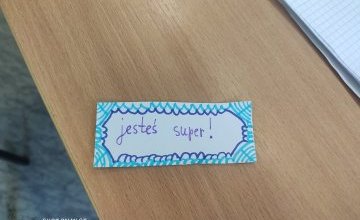 jesteś super!